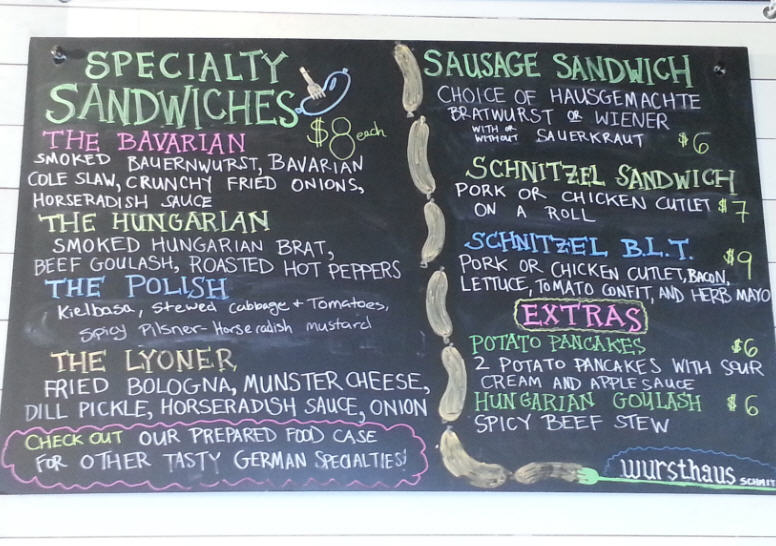 SPECIALTY
SANDWICHES
$8 each
THE BAVARIAN
SMOKED BAUERNWURST, BAVARIAN
COLE SLAW, CRUNCHY FRIED ONIONS,
HORSERADISH SAUCE
THE HUNGARIAN
SMOKED HUNGARIAN BRAT,
BEEF GOULASH, ROASTED HOT PEPPERS
THE POLISH
Kielbasa, stewed cabbage + Tomatoes,
spicy Pilsner-Horseradish mustard
THE LYONER
FRIED BOLOGNA, MUNSTER CHEESE,
DILL PICKLE, HORSERADISH SAUCE, ONION
CHECK OUT OUR PREPARED FOOD CASE
FOR OTHER TASTY GERMAN SPECIALTIES!
SAUSAGE SANDWICH
CHOICE OF HAUSGEMACHTE
BRATWURST OR WIENER
WITH OR WITHOUT SAUERKRAUT $6
SCHNITZEL SANDWICH
PORK OR CHICKEN CUTLET $7
ON A ROLL
SCHNITZEL B.L.T. $9
PORK OR CHICKEN CUTLET, BACON,
LETTUCE, TOMATO CONFIT, AND HERB MAYO
EXTRAS
POTATO PANCAKES $6
2 POTATO PANCAKES WITH SOUR
CREAM AND APPLESAUCE
HUNGARIAN GOULASH $6
SPICY BEEF STEW
wursthaus SCHMIT